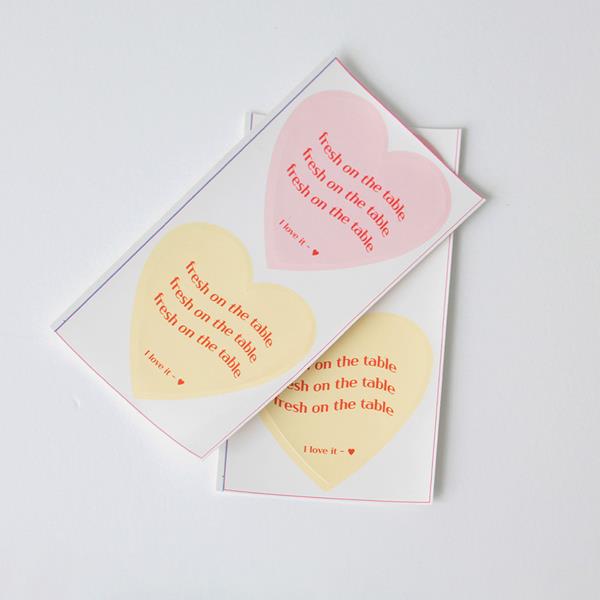 fresh on the table
fresh on the table
fresh on the table
I love it - ♥
fresh on the table
fresh on the table
fresh on the table
I love it - ♥
on the table
on the table
fresh on the table
I love it - ♥